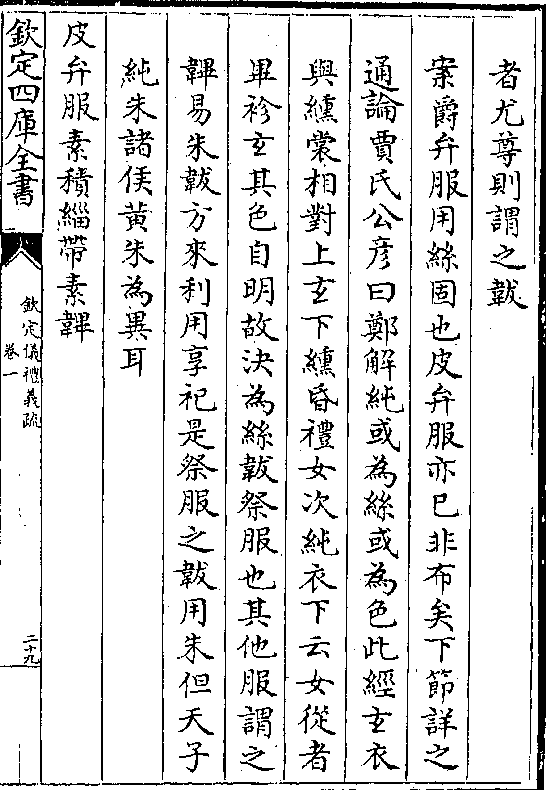 者尤尊則謂之韍
案爵弁服用絲固也皮弁服亦已非布矣下節詳之
通論賈氏公彦曰鄭解純或為絲或為色此經玄衣
與纁裳相對上玄下纁昏禮女次純衣下云女從者
畢袗玄其色自明故決為絲韍祭服也其他服謂之
韠易朱韍方來利用享祀是祭服之韍用朱但天子
純朱諸侯黄朱為異耳
皮弁服素積緇帶素韠
欽定四庫全書
欽定儀禮義疏
卷一
二十九